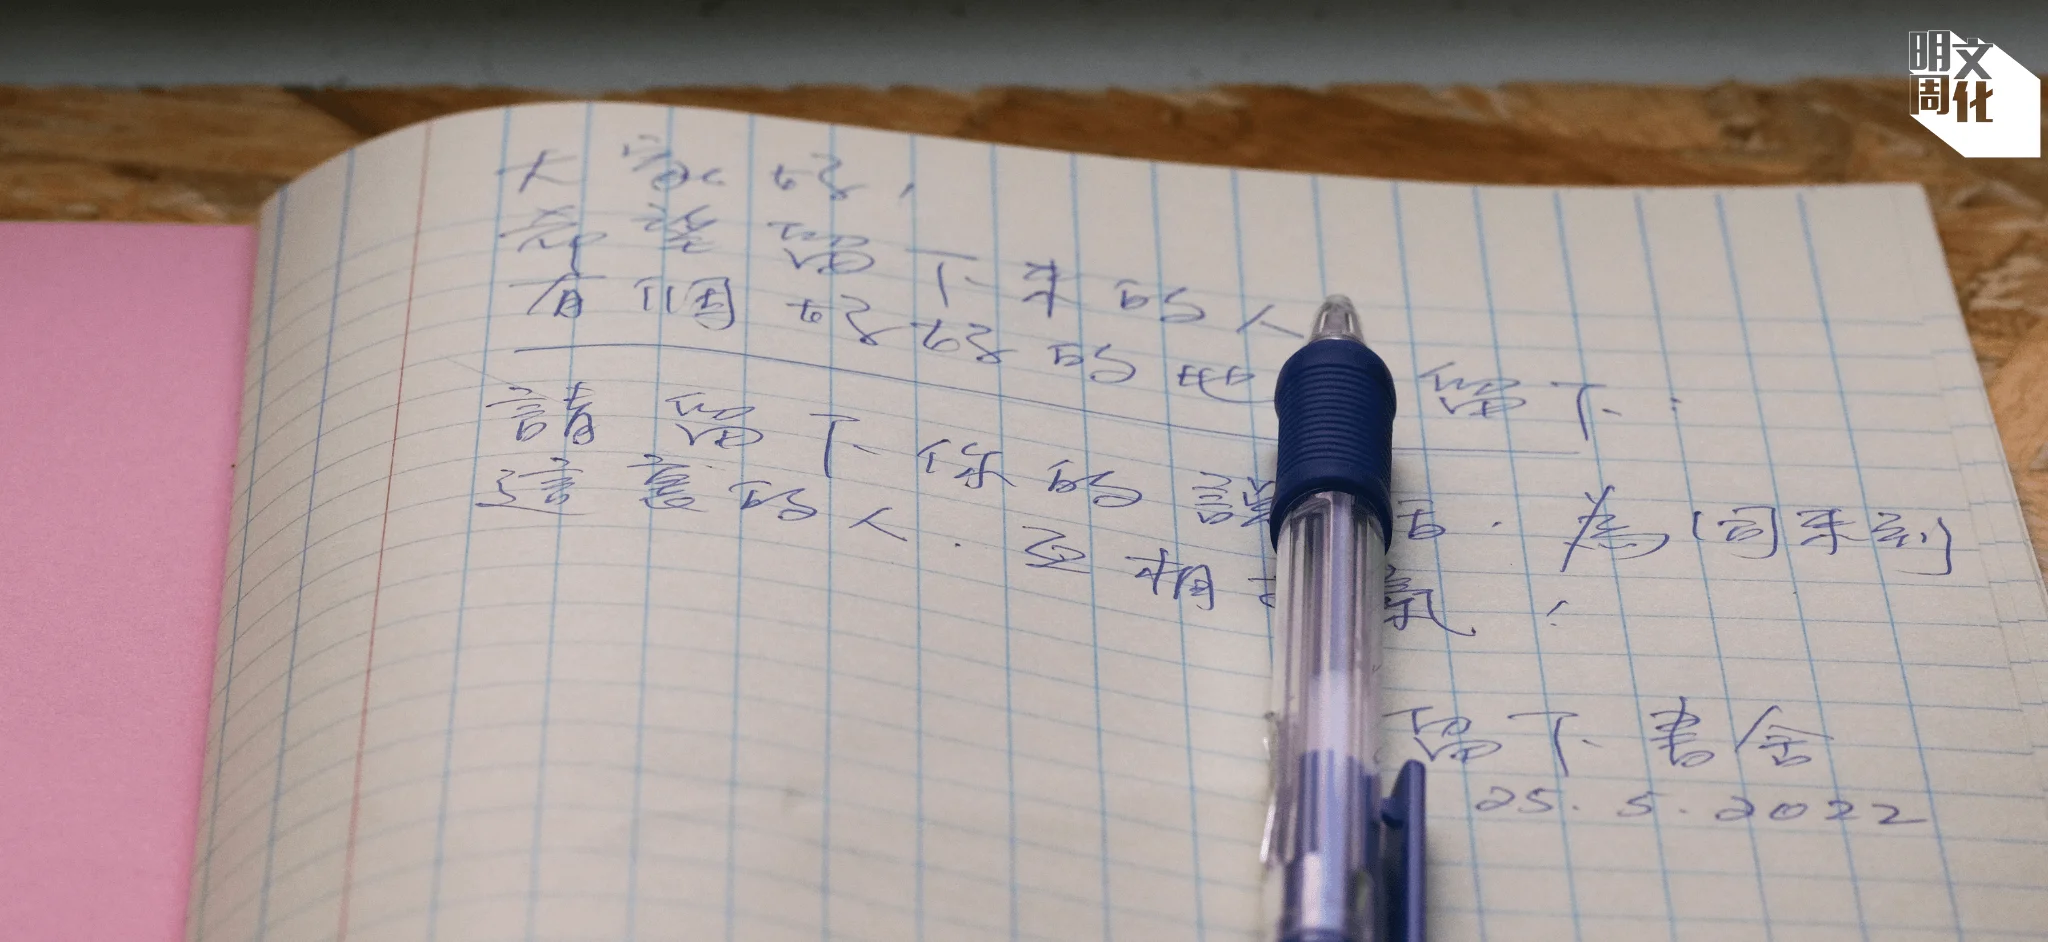 明周
文化
大家好，
希望留下來的人
有個好好的地 留下：
請留下你的 話．為同來到
這裏的人．互相 氣！
留下書舍
25.5.2022